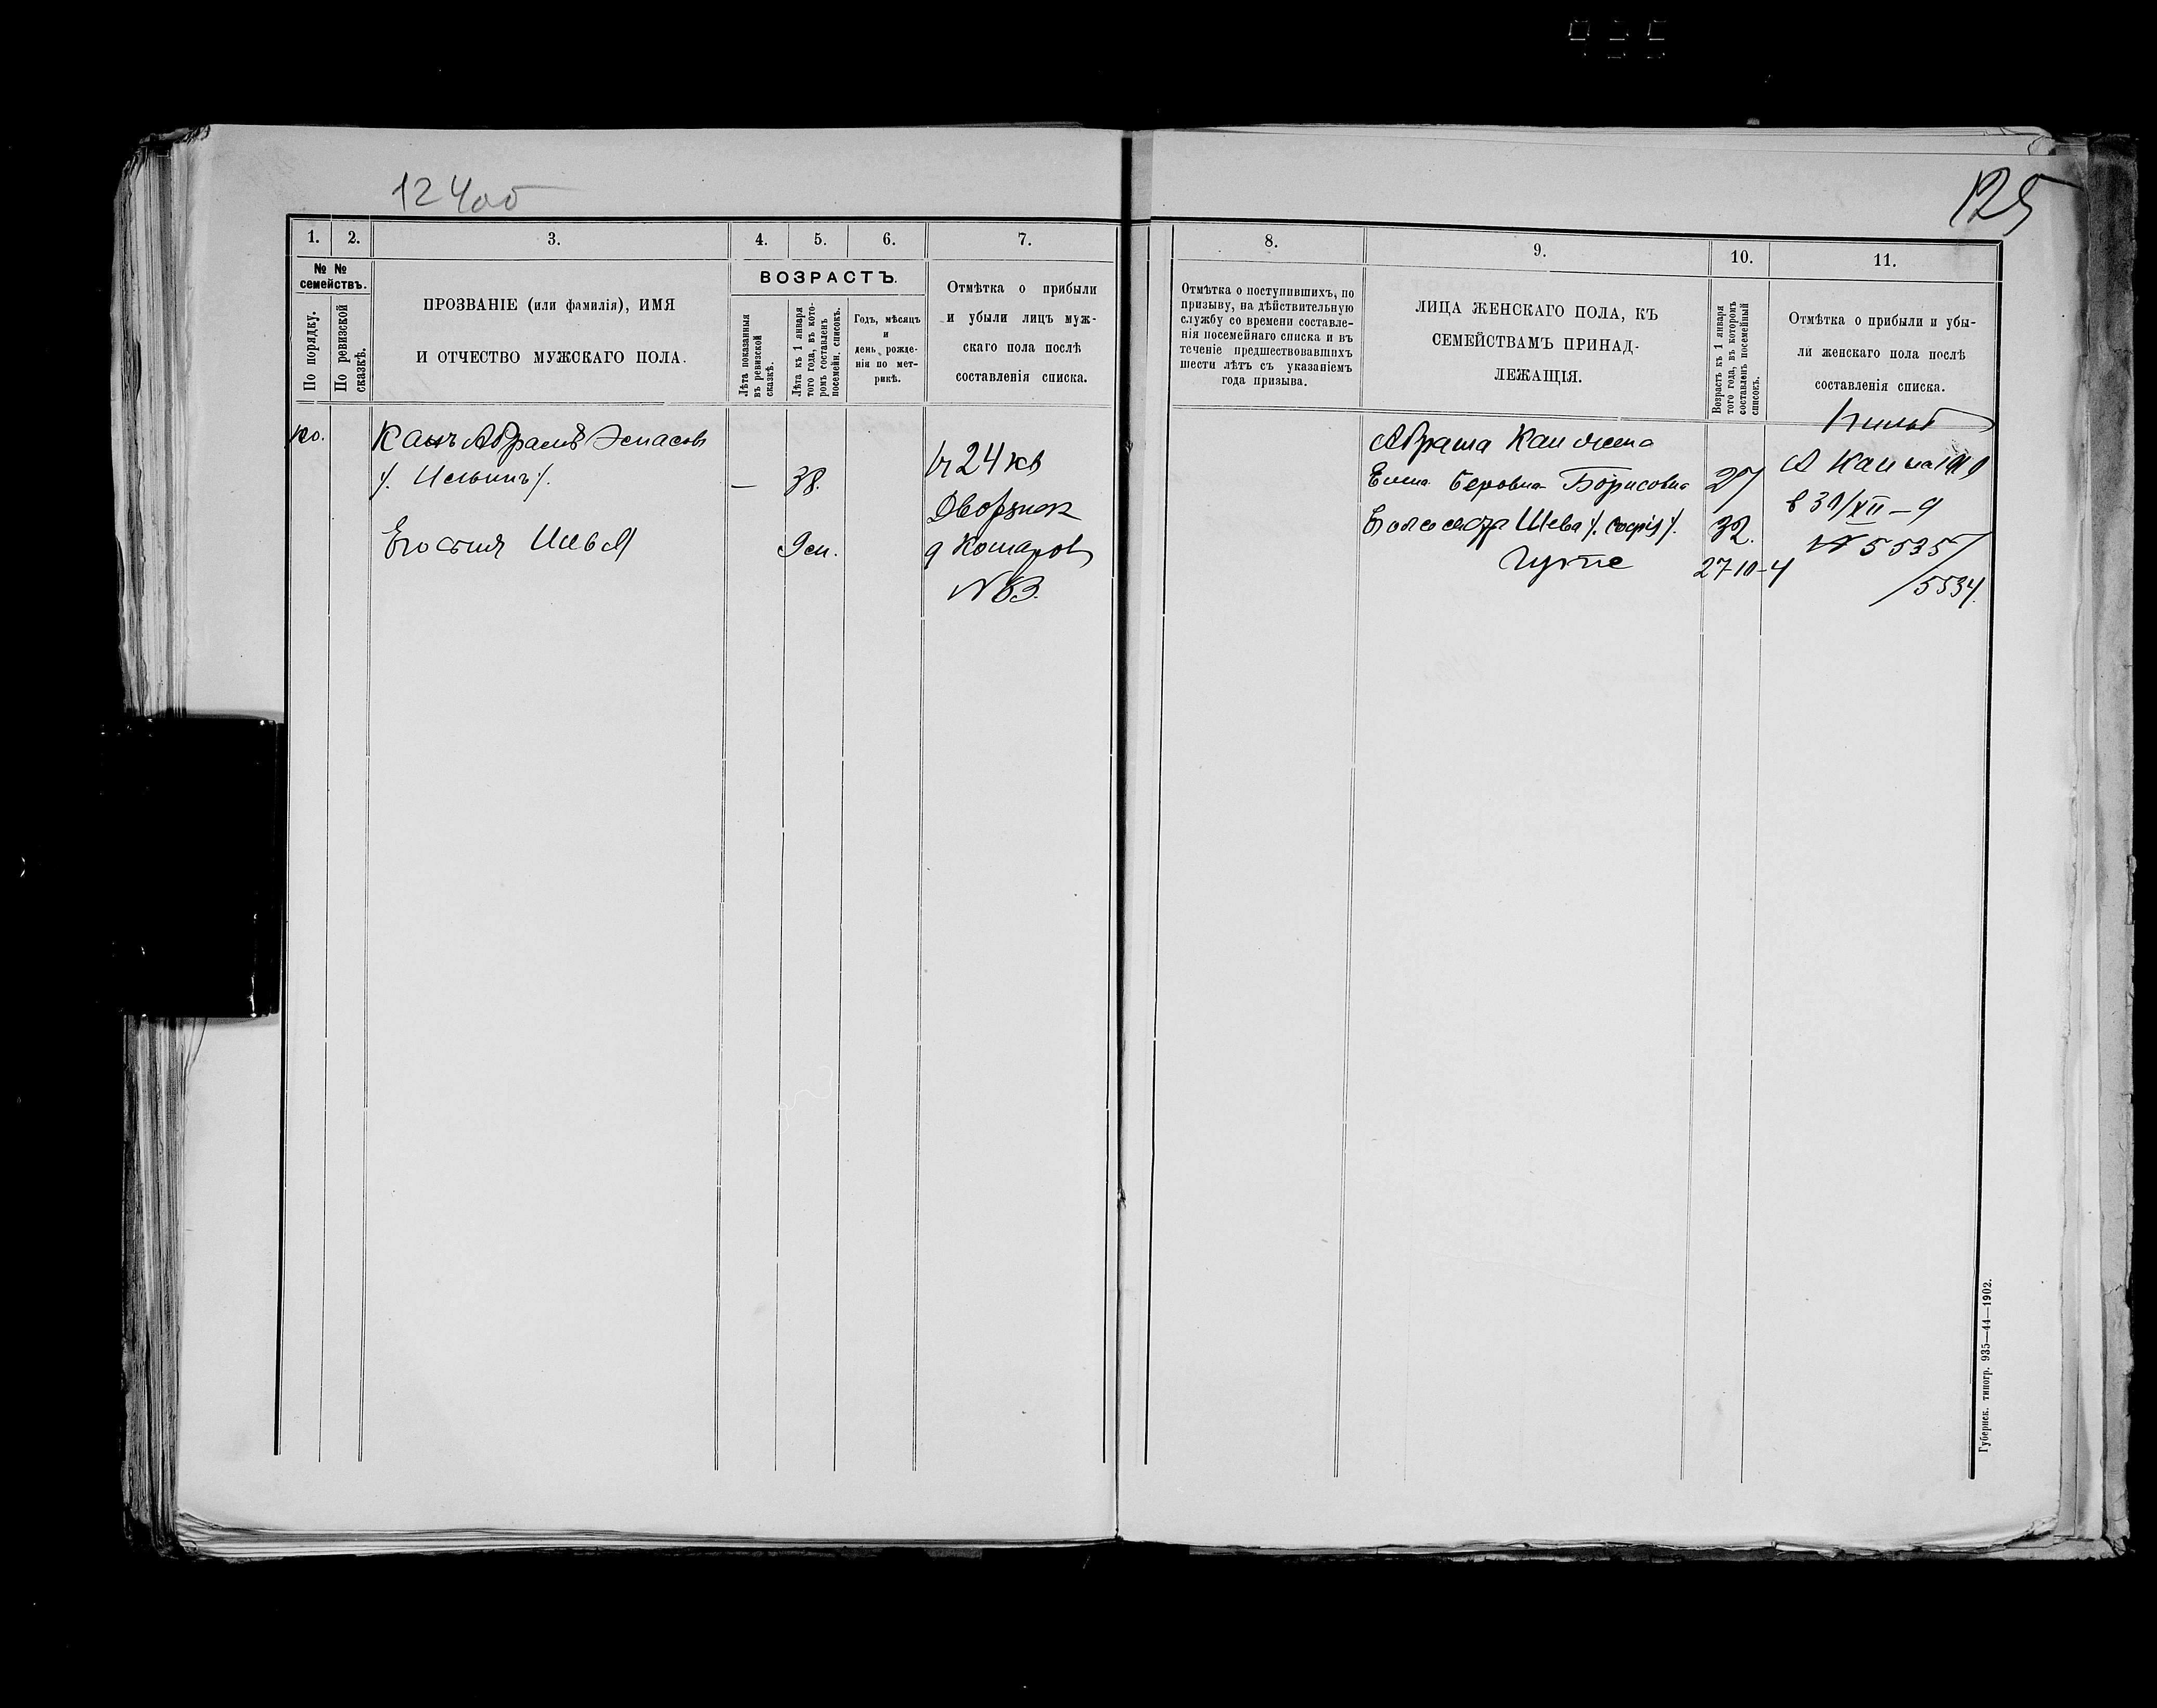 124об
125
1.
2.
3.
4.
5.
6.
7.
8.
9.
10.
11.
№ №
семействъ.
По порядку.
По ревизской
сказкѣ.
ПРОЗВАНІЕ (или фамилія), ИМЯ
И ОТЧЕСТВО МУЖСКАГО ПОЛА.
ВОЗРАСТЪ.
Лѣта показанныя
въ ревизской
сказкѣ.
Лѣта къ 1 января
того года, въ кото-
ромъ составленъ
посемейн. списокъ.
Годъ, мѣсяцъ
и
день рожде-
нія по мет-
рикѣ.
Отмѣтка о прибыли
и убыли лицъ муж-
скаго пола послѣ
составленія списка.
Отмѣтка о поступившихъ, по
призыву, на дѣйствительную
службу со времени составле-
нія посемейнаго списка и въ
теченіе предшествовавшихъ
шести лѣтъ съ указаніемъ
года призыва.
ЛИЦА ЖЕНСКАГО ПОЛА, КЪ
СЕМЕЙСТВАМЪ ПРИНАД-
ЛЕЖАЩІЯ.
Возрастъ къ 1 января
того года, въ которомъ
составленъ посемейный
списокъ.
Отмѣтка о прибыли и убы-
ли женскаго пола послѣ
составленія списка.
Канъ Абрамъ
/. Ильинъ /.
—
38.
24 кв
Его сынъ
9 м.
№
Абрама Кан жена
Беровна Борисовна
27
Его сестра Шева /. Софія /.
32.
27-10-4
А Кан на 1910
в 30/XII — 9
№ 5535/
/5534.
Губернск. типогр. 935—44—1902.